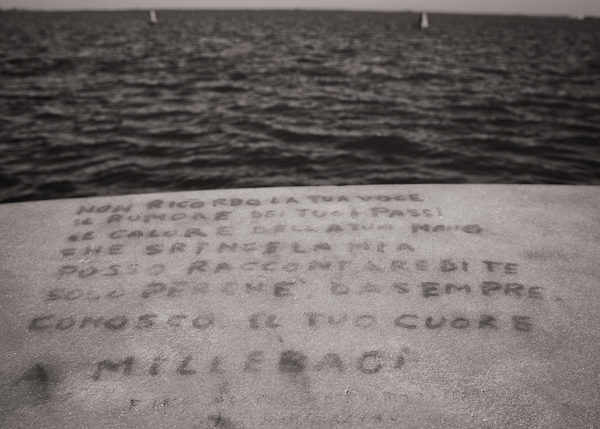 NON RICORDO LA TUA VOCE
IL RUMORE DEI TUOI PASSI
IL CALORE DELLA TUA MANO
CHE STRINGE LA MIA
POSSO RACCONTARE DI TE
SOLO PERCHÈ DA SEMPRE
CONOSCO IL TUO CUORE
MILLEBACI